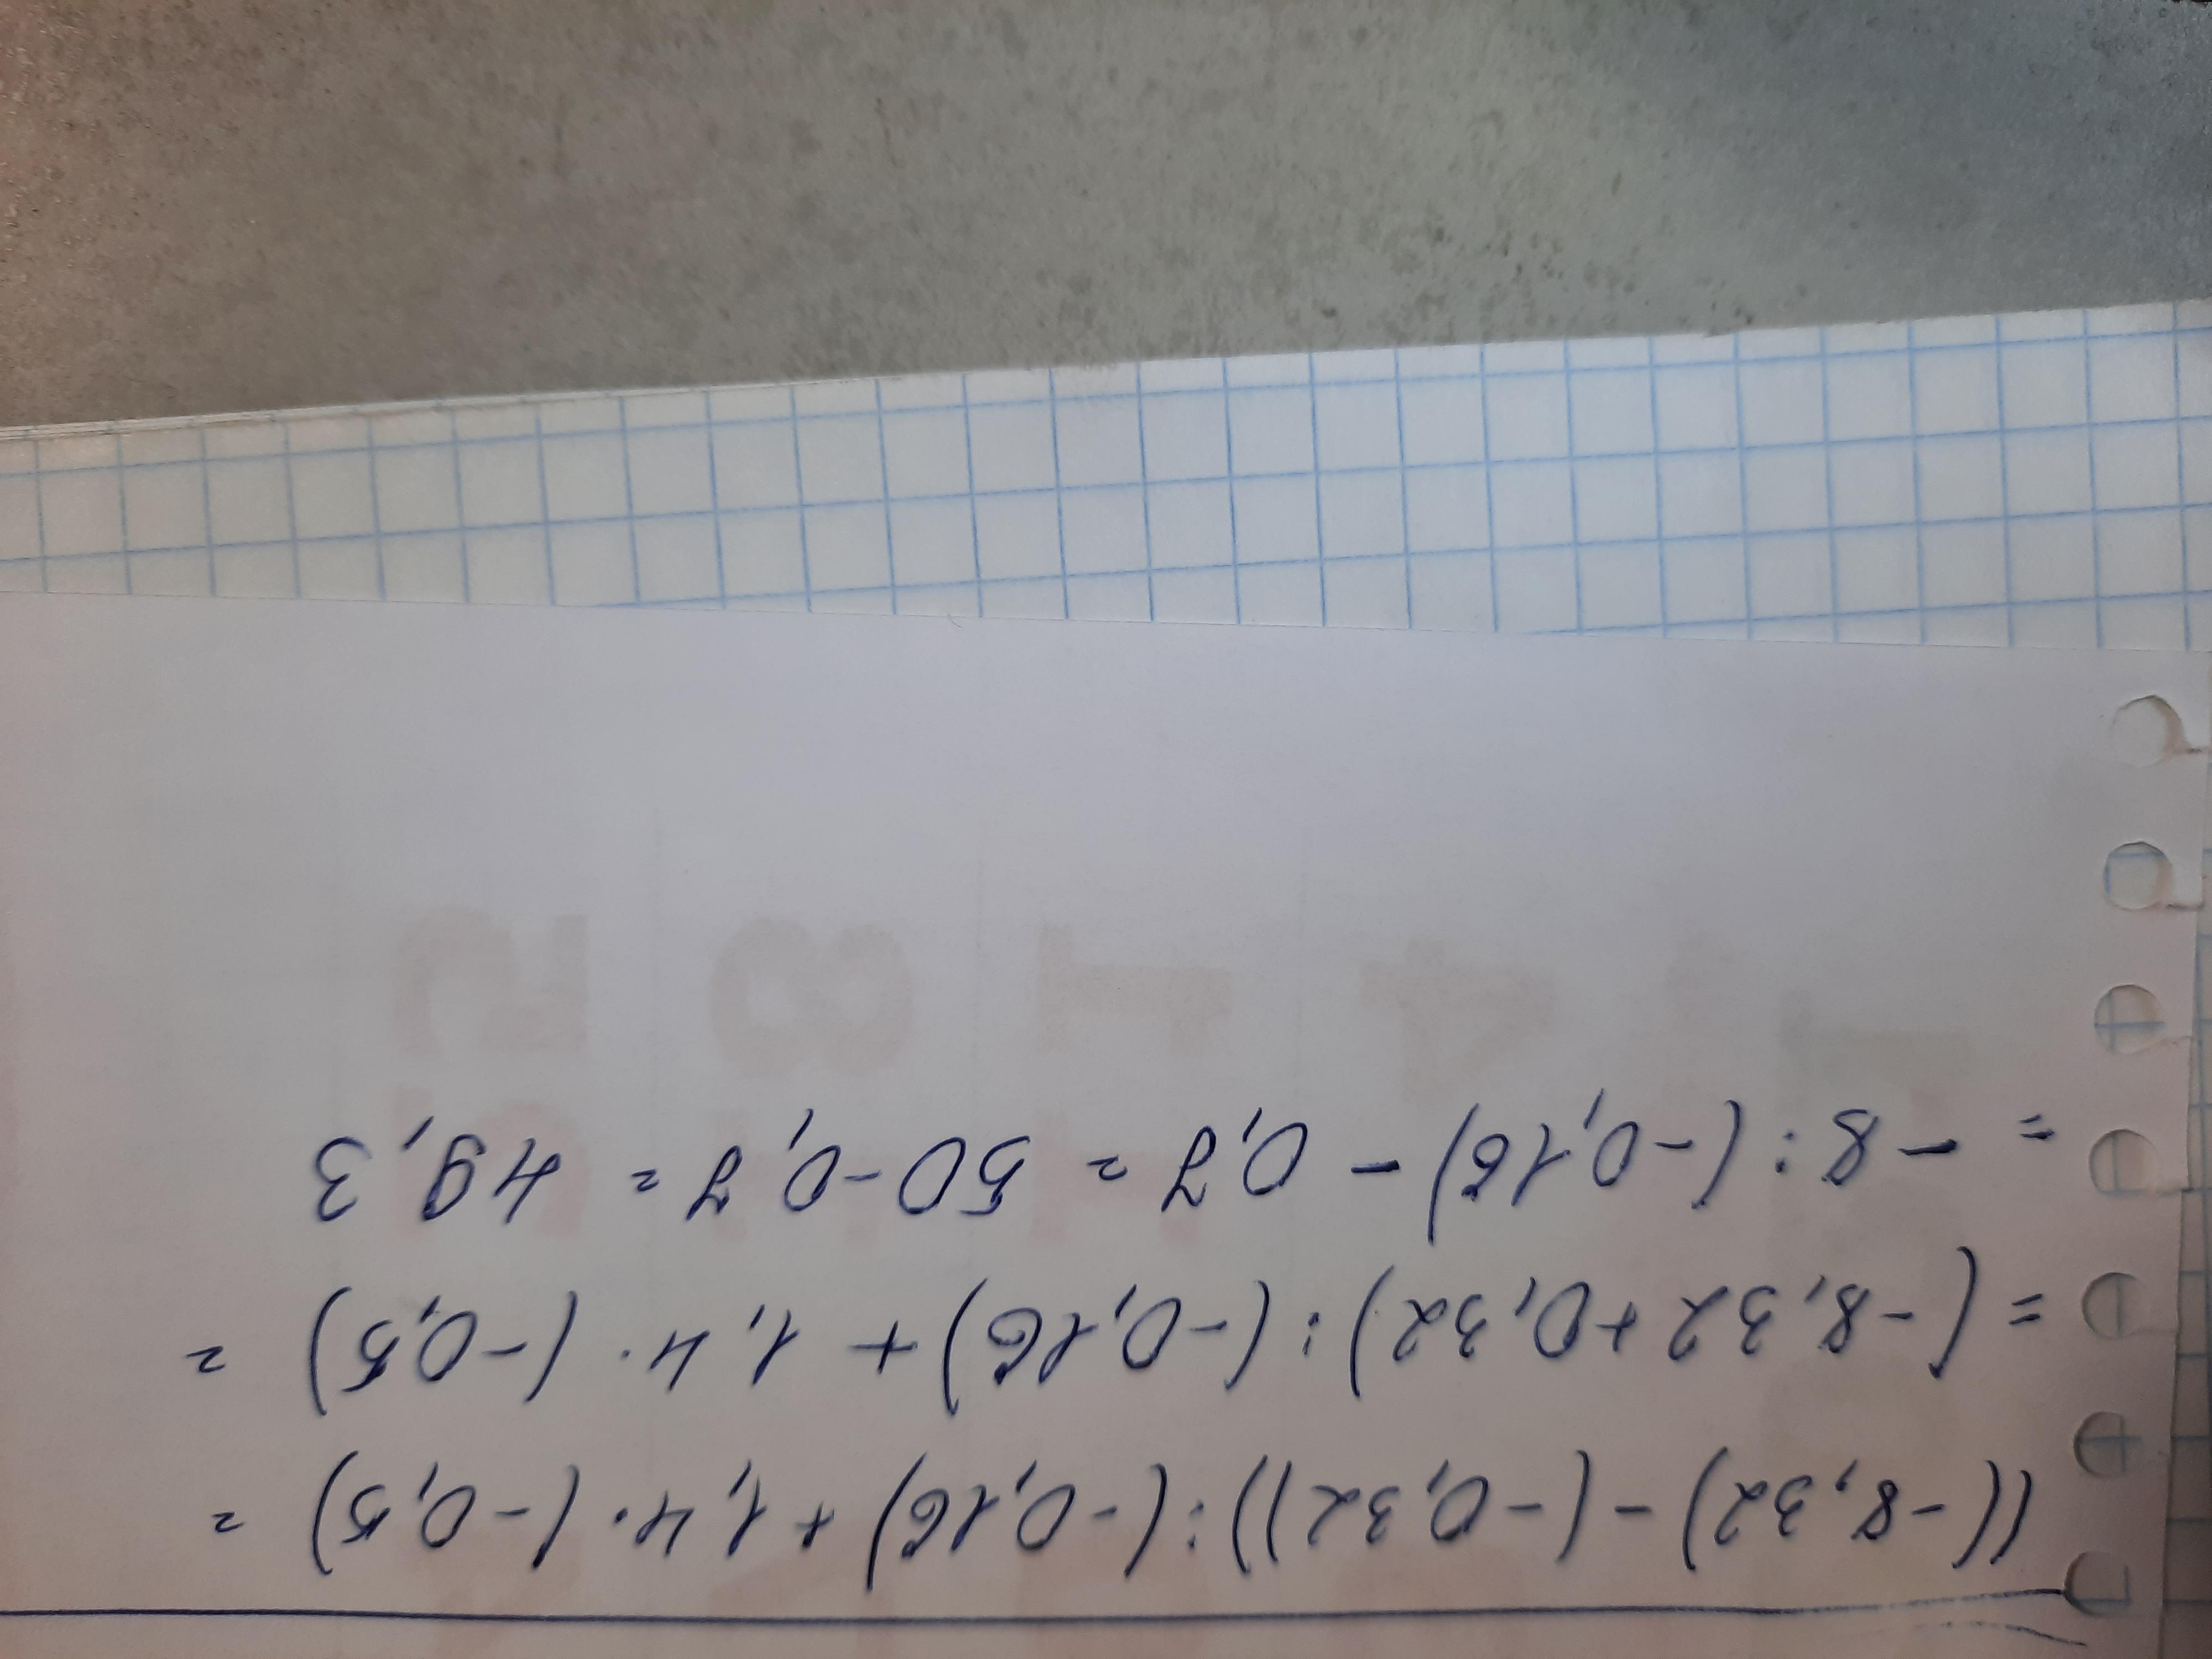 ((-8,32)-(-0,32)):(-0,16)+1,4·(-0,5)=
=(-8,32+0,32):(-0,16)+1,4·(-0,5)=
=-8:(-0,16)-0,7=50-0,7=49,3